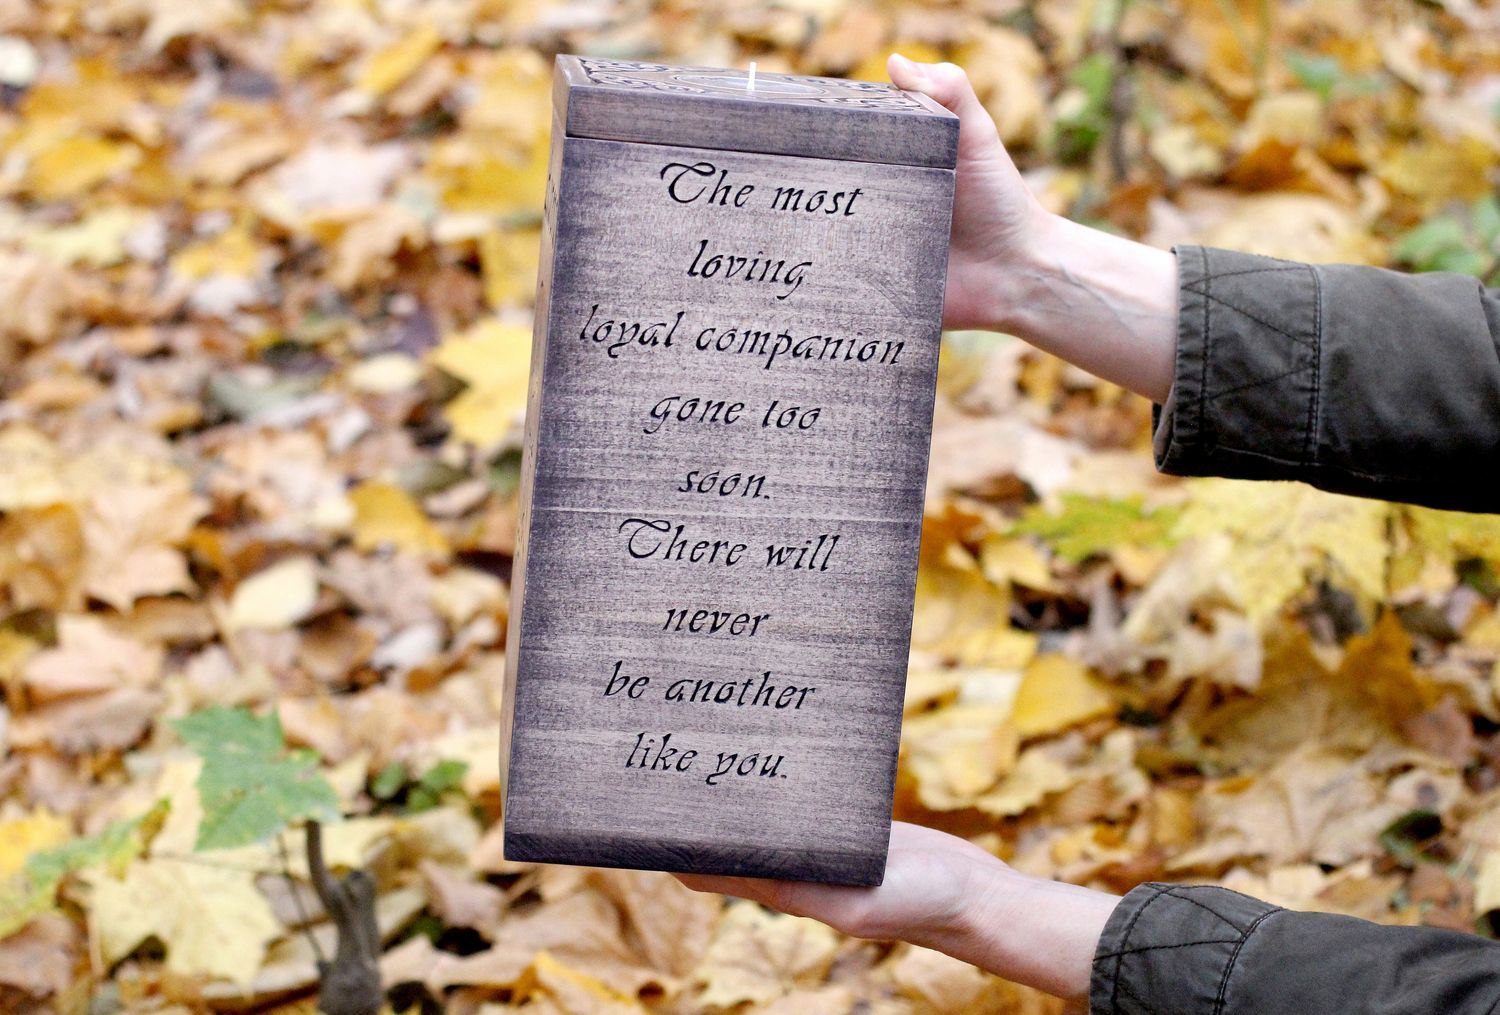 The most
loving
loyal companion
gone too
soon.
There will
never
be another
like you.